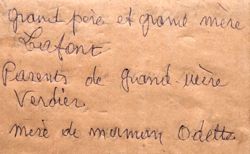 grand père et grand mère
Lafont
Parents de grand-mère
Verdier
mère de maman Odette